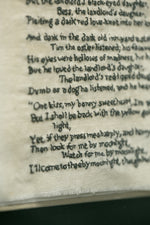 But the landlord's black-eyed daughter,
Bess, the landlord's daughter,
Plaiting a dark red love-knot into her
And dark in the dark old inn-yard a
Tim the ostler listened; his f
His eyes were hollows of madness, his
But he loved the landlord's daughter,
The landlord's red-lipped daugh
Dumb as a dog he listened, and he hear
"One kiss, my bonny sweetheart, I'm a
But I shall be back with the yellow go
light;
Yet, if they press me sharply, and harry
Then look for me by moonlight,
Watch for me by moonlight,
I'll come to thee by moonlight, though